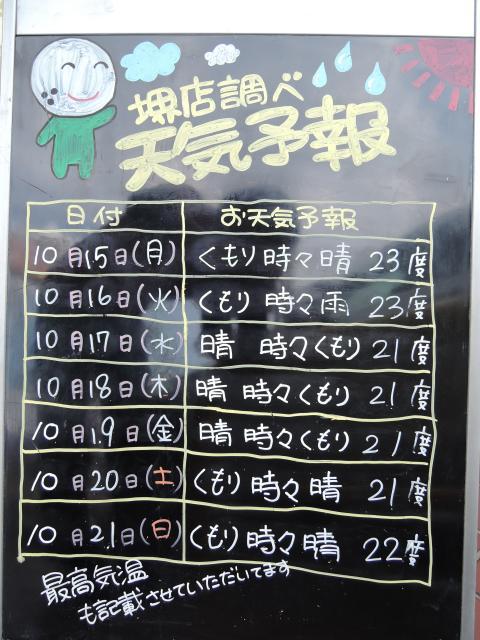 堺店調べ
天気予報
日付 お天気予報
10月15日(月) くもり時々晴 23度
10月16日(火) くもり時々雨 23度
10月17日(水) 晴 時々くもり 21度
10月18日(木) 晴 時々くもり 21度
10月19日(金) 晴 時々くもり 21度
10月20日(土) くもり 時々 晴 21度
10月21日(日) くもり 時々 晴 22度
最高気温
も記載させていただいてます